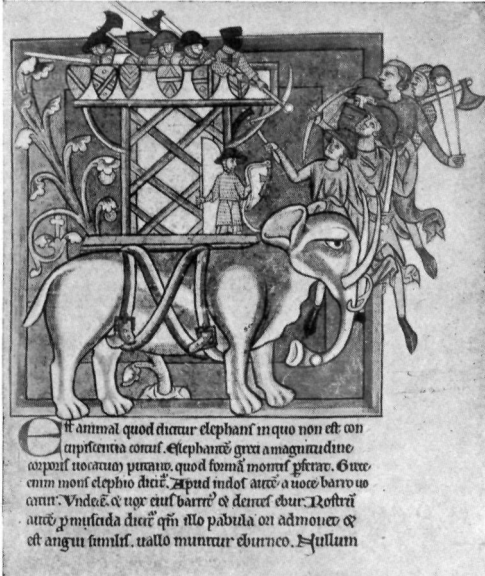 Est animal quod dicitur elephans in quo non est con
cupiscentia coitus. Elephantē greci a magnitudine
corporis uocatum putant, quod formā montis p̄ferat. Grece
enim mons elephio dicit᷑. Apud indos autē a uoce barro uo
catur. Vnde ⁊ uox eius barrit᷒ ⁊ dentes ebur. Rostrū
autē p̄muscida dicit᷑ qm̄ illo pabula ori admouet ⁊
est angui similis. uallo munitur eburneo. Nullum